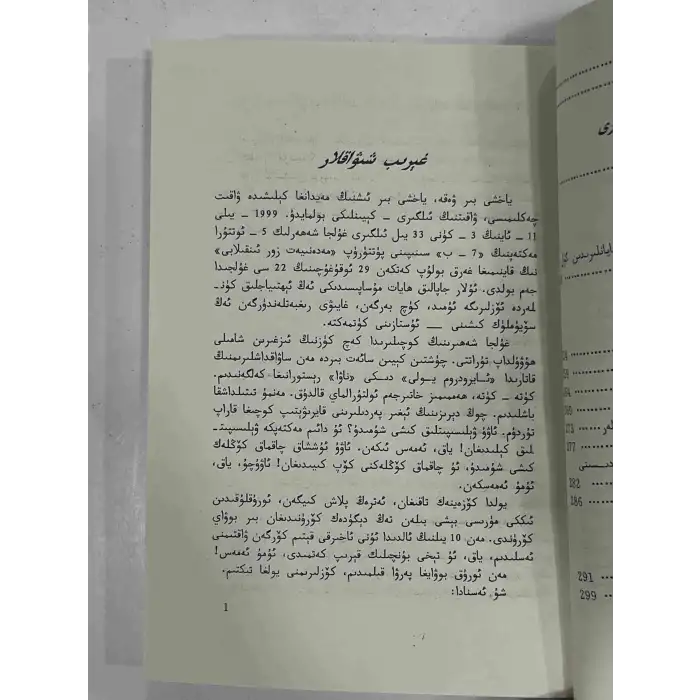 غېرىب ئىنۋاقلار
ياخشى بىر ۋەقە، ياخشى بىر ئىشنىڭ مەيدانغا كېلىشىدە ۋاقىت
چەكلىمىسى، ۋاقىتنىڭ ئىلگىرى ــ كېيىنلىكى بولمايدۇ. 1999 ـ يىلى
11 ـ ئاينىڭ 3 ـ كۈنى 33 يىل ئىلگىرى غۇلجا شەھەرلىك 5 ـ ئوتتۇرا
مەكتەپنىڭ «7 ـ ب» سىنىپىنى پۈتتۈرۈپ «مەدەنىيەت زور ئىنقىلابى»
نىڭ قاينىمىغا غەرق بولۇپ كەتكەن 29 ئوقۇغۇچىنىڭ 22 سى غۇلجىدا
جەم بولدى. ئۇلار جاپالىق ھايات مۇساپىسىدىكى ئەڭ ئېھتىياجلىق كۈنـ
لەردە ئۆزلىرىگە ئۈمىد، كۈچ بەرگەن، غايىۋى رىغبەتلەندۈرگەن ئەڭ
سۆيۈملۈك كىشىنى ــ ئۇستازىنى كۈتمەكتە.
غۇلجا شەھىرىنىڭ كوچىلىرىدا كەچ كۈزنىڭ ئىزغىرىن شامىلى
ھۇۋۇلداپ تۇراتتى. چۈشتىن كېيىن سائەت بىردە مەن ساۋاقداشلىرىمنىڭ
قاتارىدا «ئايرودروم يولى» دىكى «ناۋا» رېستورانىغا كەلگەنىدىم.
كۈتە ــ كۈتە، ھەممىمىز خاتىرجەم ئولتۇرالماي قالدۇق. مەنمۇ تىتىلداشقا
باشلىدىم. چوڭ دېرىزىنىڭ ئېغىر پەردىلىرىنى قايرىۋېتىپ كوچىغا قاراپ
تۇردۇم. ئاۋۇ ۋېلىسىپىتلىق كىشى شۇمىدۇ؟ ئۇ دائىم مەكتەپكە ۋېلىسىپىتـ
لىق كېلىدىغان! ياق، ئەمەس ئىكەن. ئاۋۇ ئۇششاق چاقماق كۆڭلەك
كىشى شۇمىدۇ، ئۇ چاقماق كۆڭلەكنى كۆپ كىيىدىغان! ئاۋۇچۇ، ياق،
ئۇمۇ ئەمەسكەن.
يولدا كۆزەينەك تاقىغان، ئەترەڭ پلاش كىيگەن، ئورۇقلۇقىدىن
ئىككى مۈرىسى بېشى بىلەن تەڭ دېگۈدەك كۆرۈنىدىغان بىر بوۋاي
كۆرۈندى. مەن 10 يىلنىڭ ئالدىدا ئۇنى ئاخىرقى قېتىم كۆرگەن ۋاقتىمنى
ئەسلىدىم، ياق، ئۇ تېخى بۇنچىلىك قېرىپ كەتمىدى، ئۇمۇ ئەمەس!
مەن ئورۇق بوۋايغا پەرۋا قىلمىدىم، كۆزلىرىمنى يولغا تىكتىم.
شۇ ئەسنادا:
1
277
282
286
291
299